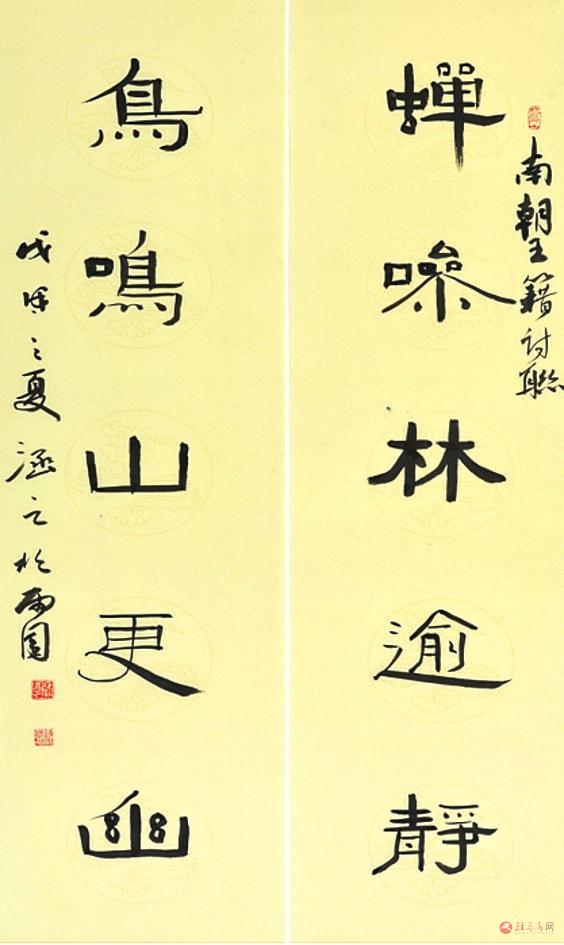 南朝王籍詩聯
蟬噪林逾靜
鳥鳴山更幽
戊戌之夏涵之於雨園
驻马店网